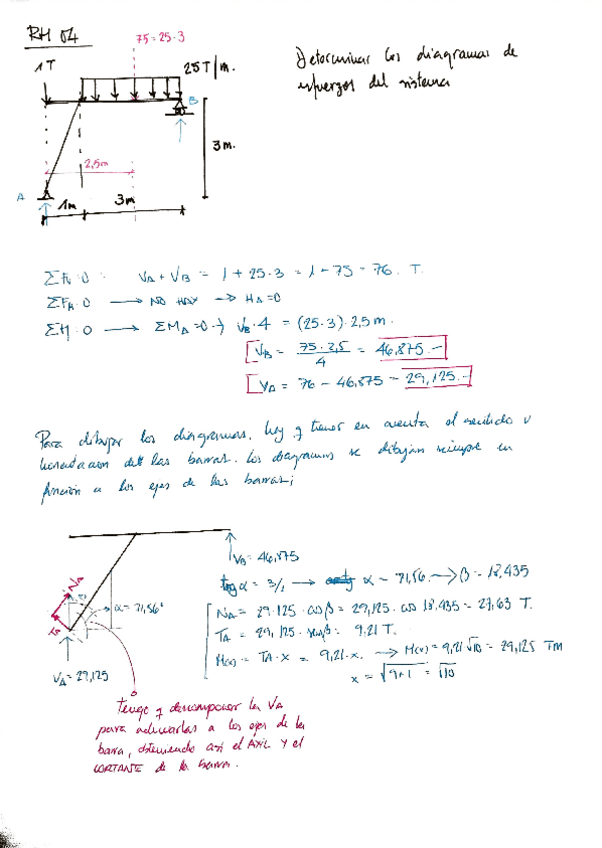 RH 04
75 = 25·3
1T
25T/m.
B
Determinar los diagramas de
esfuerzos del sistema
3m.
2,5m
A
1m
3m
ΣFv = 0 : VA + VB = 1 + 25·3 = 1 + 75 = 76. T.
ΣFH = 0 → NO HAY → HA = 0
ΣM = 0 → ΣMA = 0 → VB·4 = (25·3)·2,5m.
VB = 75·2,5 / 4 = 46,875.-
VA = 76 - 46,875 = 29,125.-
Para dibujar los diagramas, hay q tener en cuenta el sentido u
las barras. Los diagramas se dibujan siempre en
función a los ejes de las barras;
VB = 46,875
tog α = 3/1 → α = 71,56. → β = 18,435
NA
TA
α = 71,56°
NA = 29.125 · cos β = 29,125. cos 18,435 = 27,63 T.
TA = 29,125 · sen β = 9,21 T.
M(x) = TA·x = 9,21·x. → M(x) = 9,21 √10 = 29,125 TM
x = √9+1 = √10
VA = 29,125
Tengo q descomponer la VA
para adecuarlas a los ejes de la
barra, obteniendo así el AXIL Y el
CORTANTE de la barra.